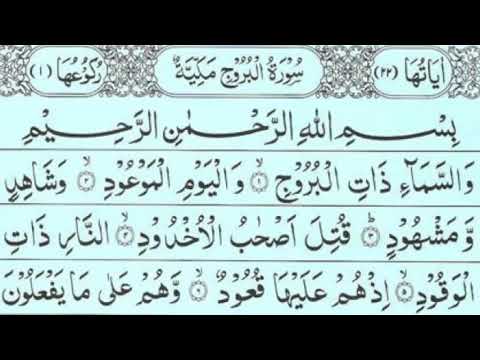 اٰيَاتُهَا (٢٢) سُوْرَةُ الْبُرُوْجِ مَكِّيَّةٌ رُكُوْعُهَا (١)
بِسْمِ اللهِ الرَّحْمٰنِ الرَّحِيْمِ
وَالسَّمَآءِ ذَاتِ الْبُرُوْجِ ۙ﴿١﴾ وَالْيَوْمِ الْمَوْعُوْدِ ۙ﴿٢﴾ وَشَاهِدٍ
وَّمَشْهُوْدٍ ؕ﴿٣﴾ قُتِلَ اَصْحٰبُ الْاُخْدُوْدِ ۙ﴿٤﴾ النَّارِ ذَاتِ
الْوَقُوْدِ ۙ﴿٥﴾ اِذْ هُمْ عَلَيْهَا قُعُوْدٌ ۙ﴿٦﴾ وَّهُمْ عَلٰى مَا يَفْعَلُوْنَ